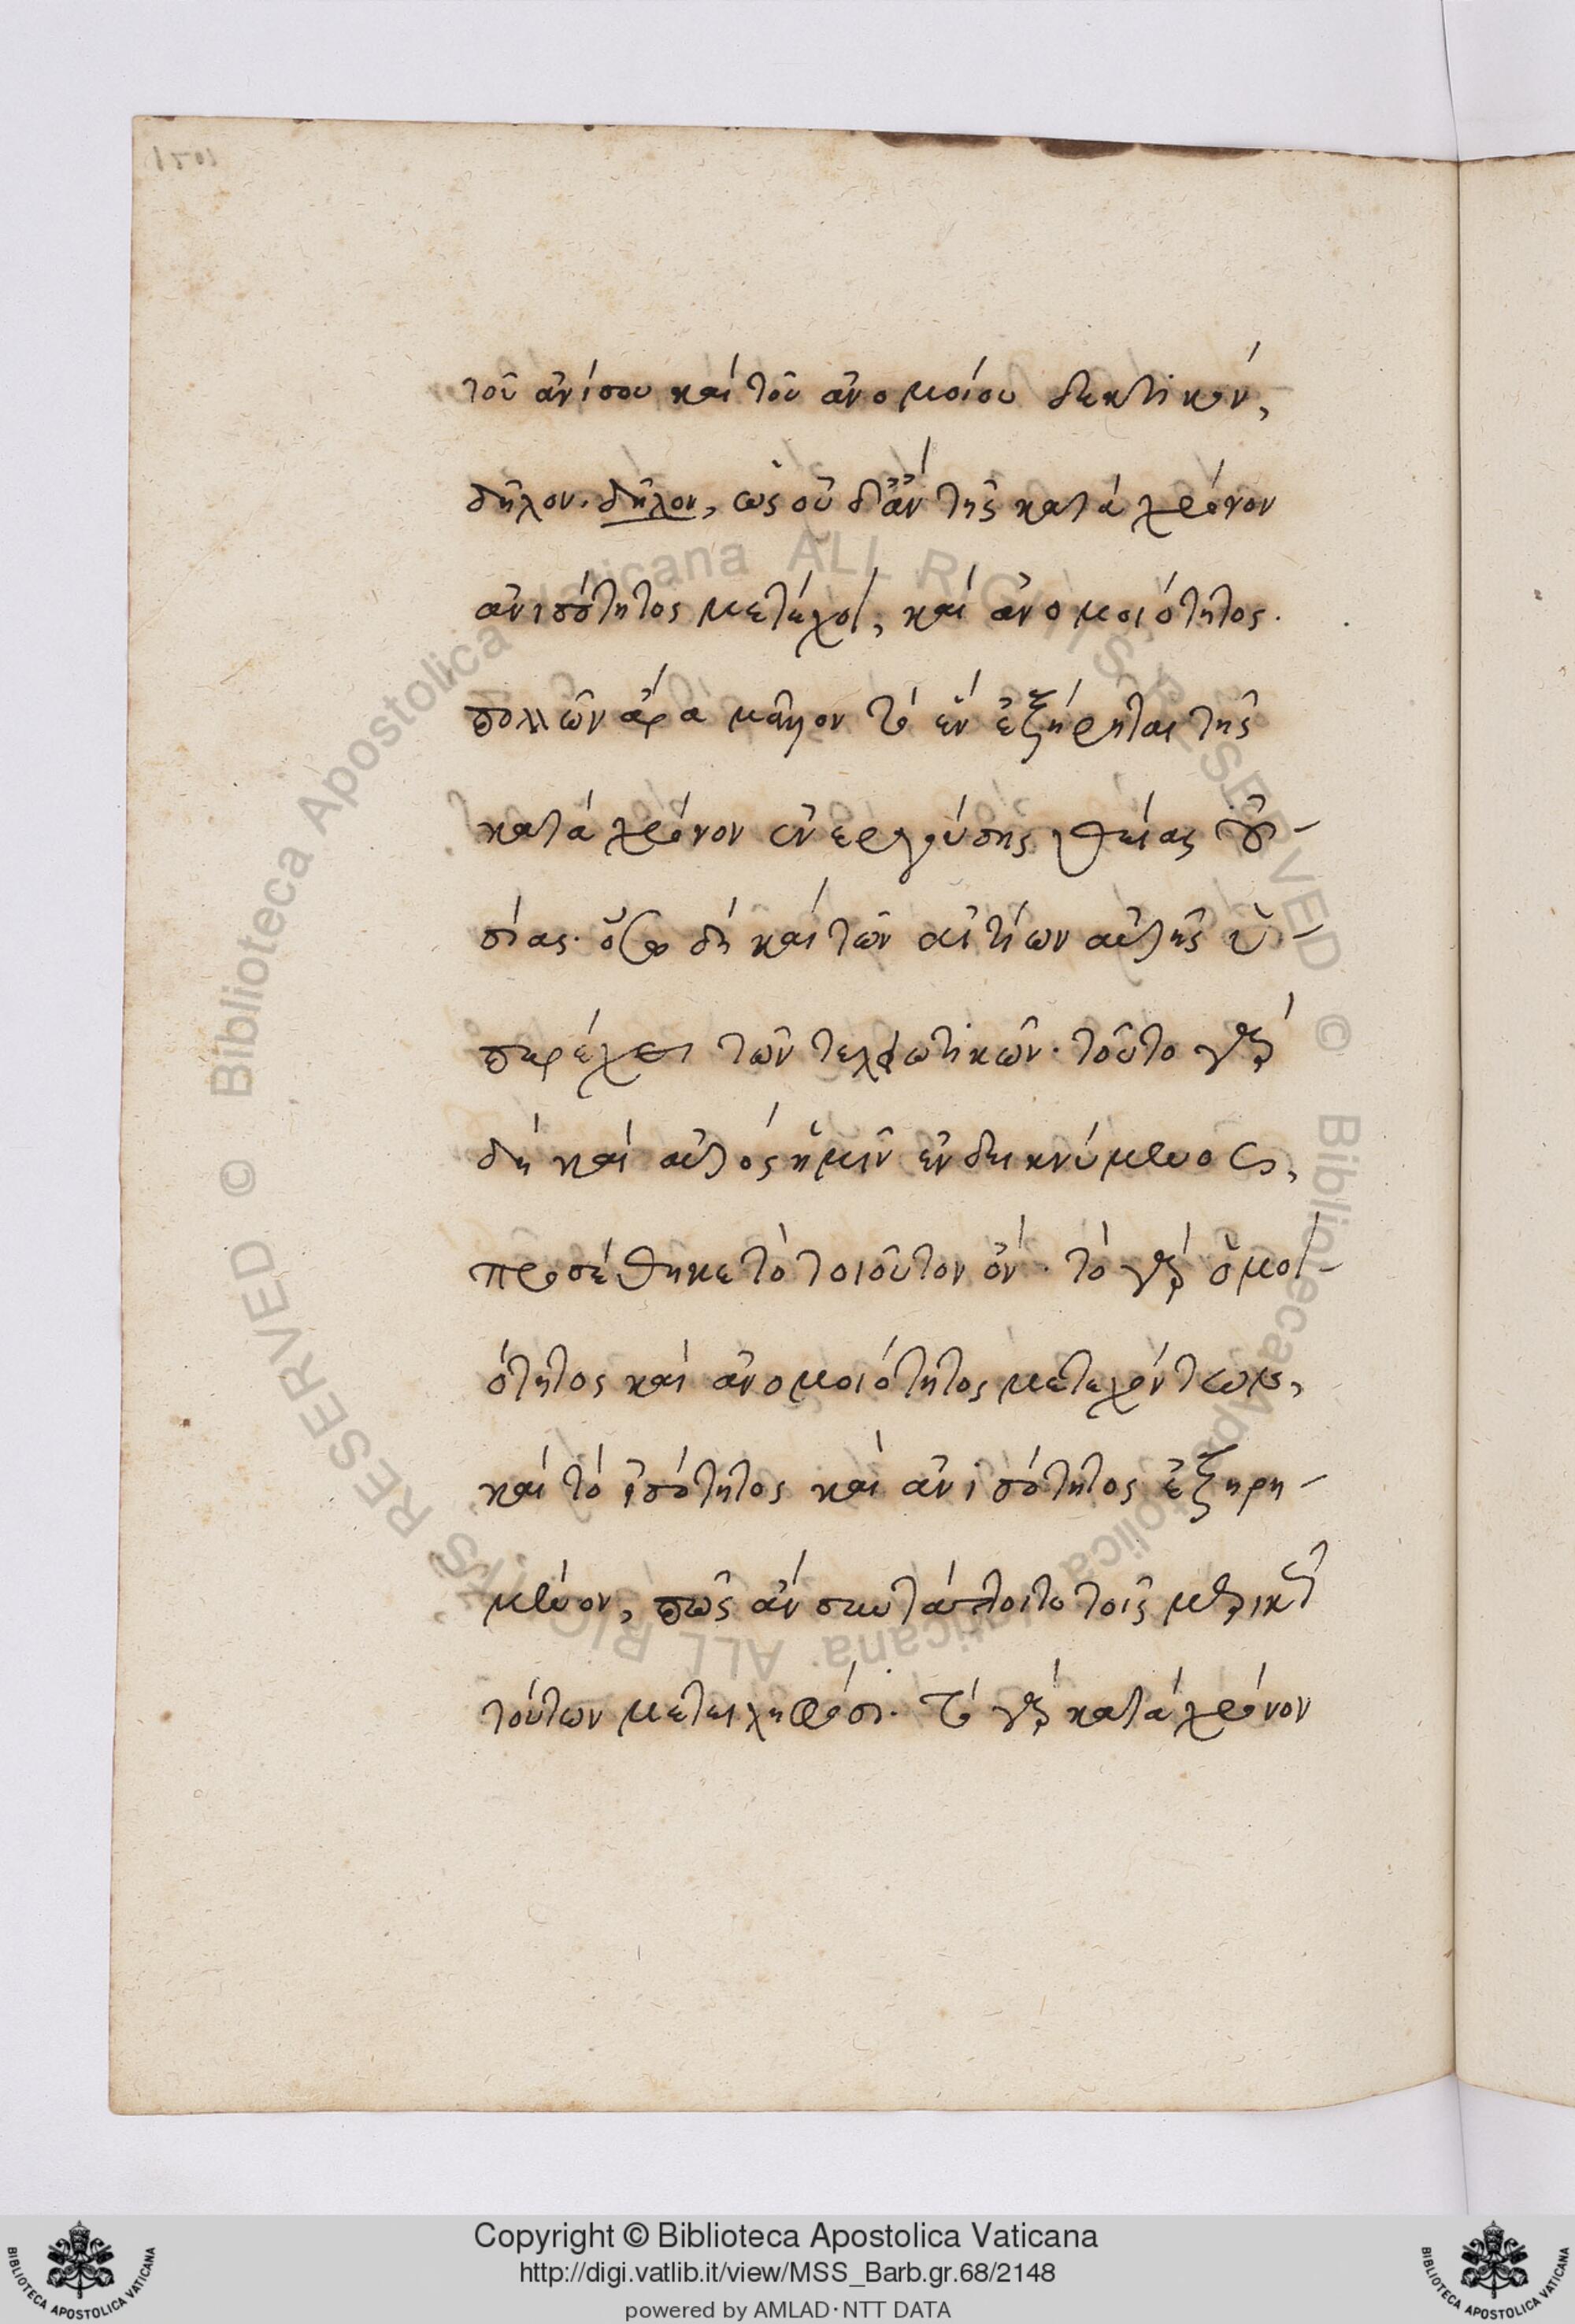 τοῦ ἀνίσου καὶ τοῦ ἀνομοίου δεκτικόν,
δῆλον. δῆλον, ὡς οὐδ' ἂν τῆς κατὰ χρόνον
ἀνισότητος μετέχοι, καὶ ἀνομοιότητος.
πολλῶν ἄρα μᾶλλον τὸ ἓν ἐξήρηται τῆς
κατὰ χρόνον ἐνεργούσης θείας οὐ-
σίας. ὅσῳ δὴ καὶ τῶν αἰτίων αὐτῆς ὑ-
περέχει τῶν τελειωτικῶν. τοῦτο γὰρ
δὴ καὶ αὐτὸς ἡμῖν ἐνδεικνύμενος,
προσέθηκε τὸ τοιοῦτον ὄν. τὸ γὰρ ὁμοι-
ότητος καὶ ἀνομοιότητος μετεχόντως,
καὶ τὸ ἰσότητος καὶ ἀνισότητος ἐξηρη-
μένον, πῶς ἂν συντάττοιτο τοῖς μερικῶς
τούτων μετειληφόσι. τὸ γὰρ κατὰ χρόνον
Copyright © Biblioteca Apostolica Vaticana
http://digi.vatlib.it/view/MSS_Barb.gr.68/2148
powered by AMLAD·NTT DATA